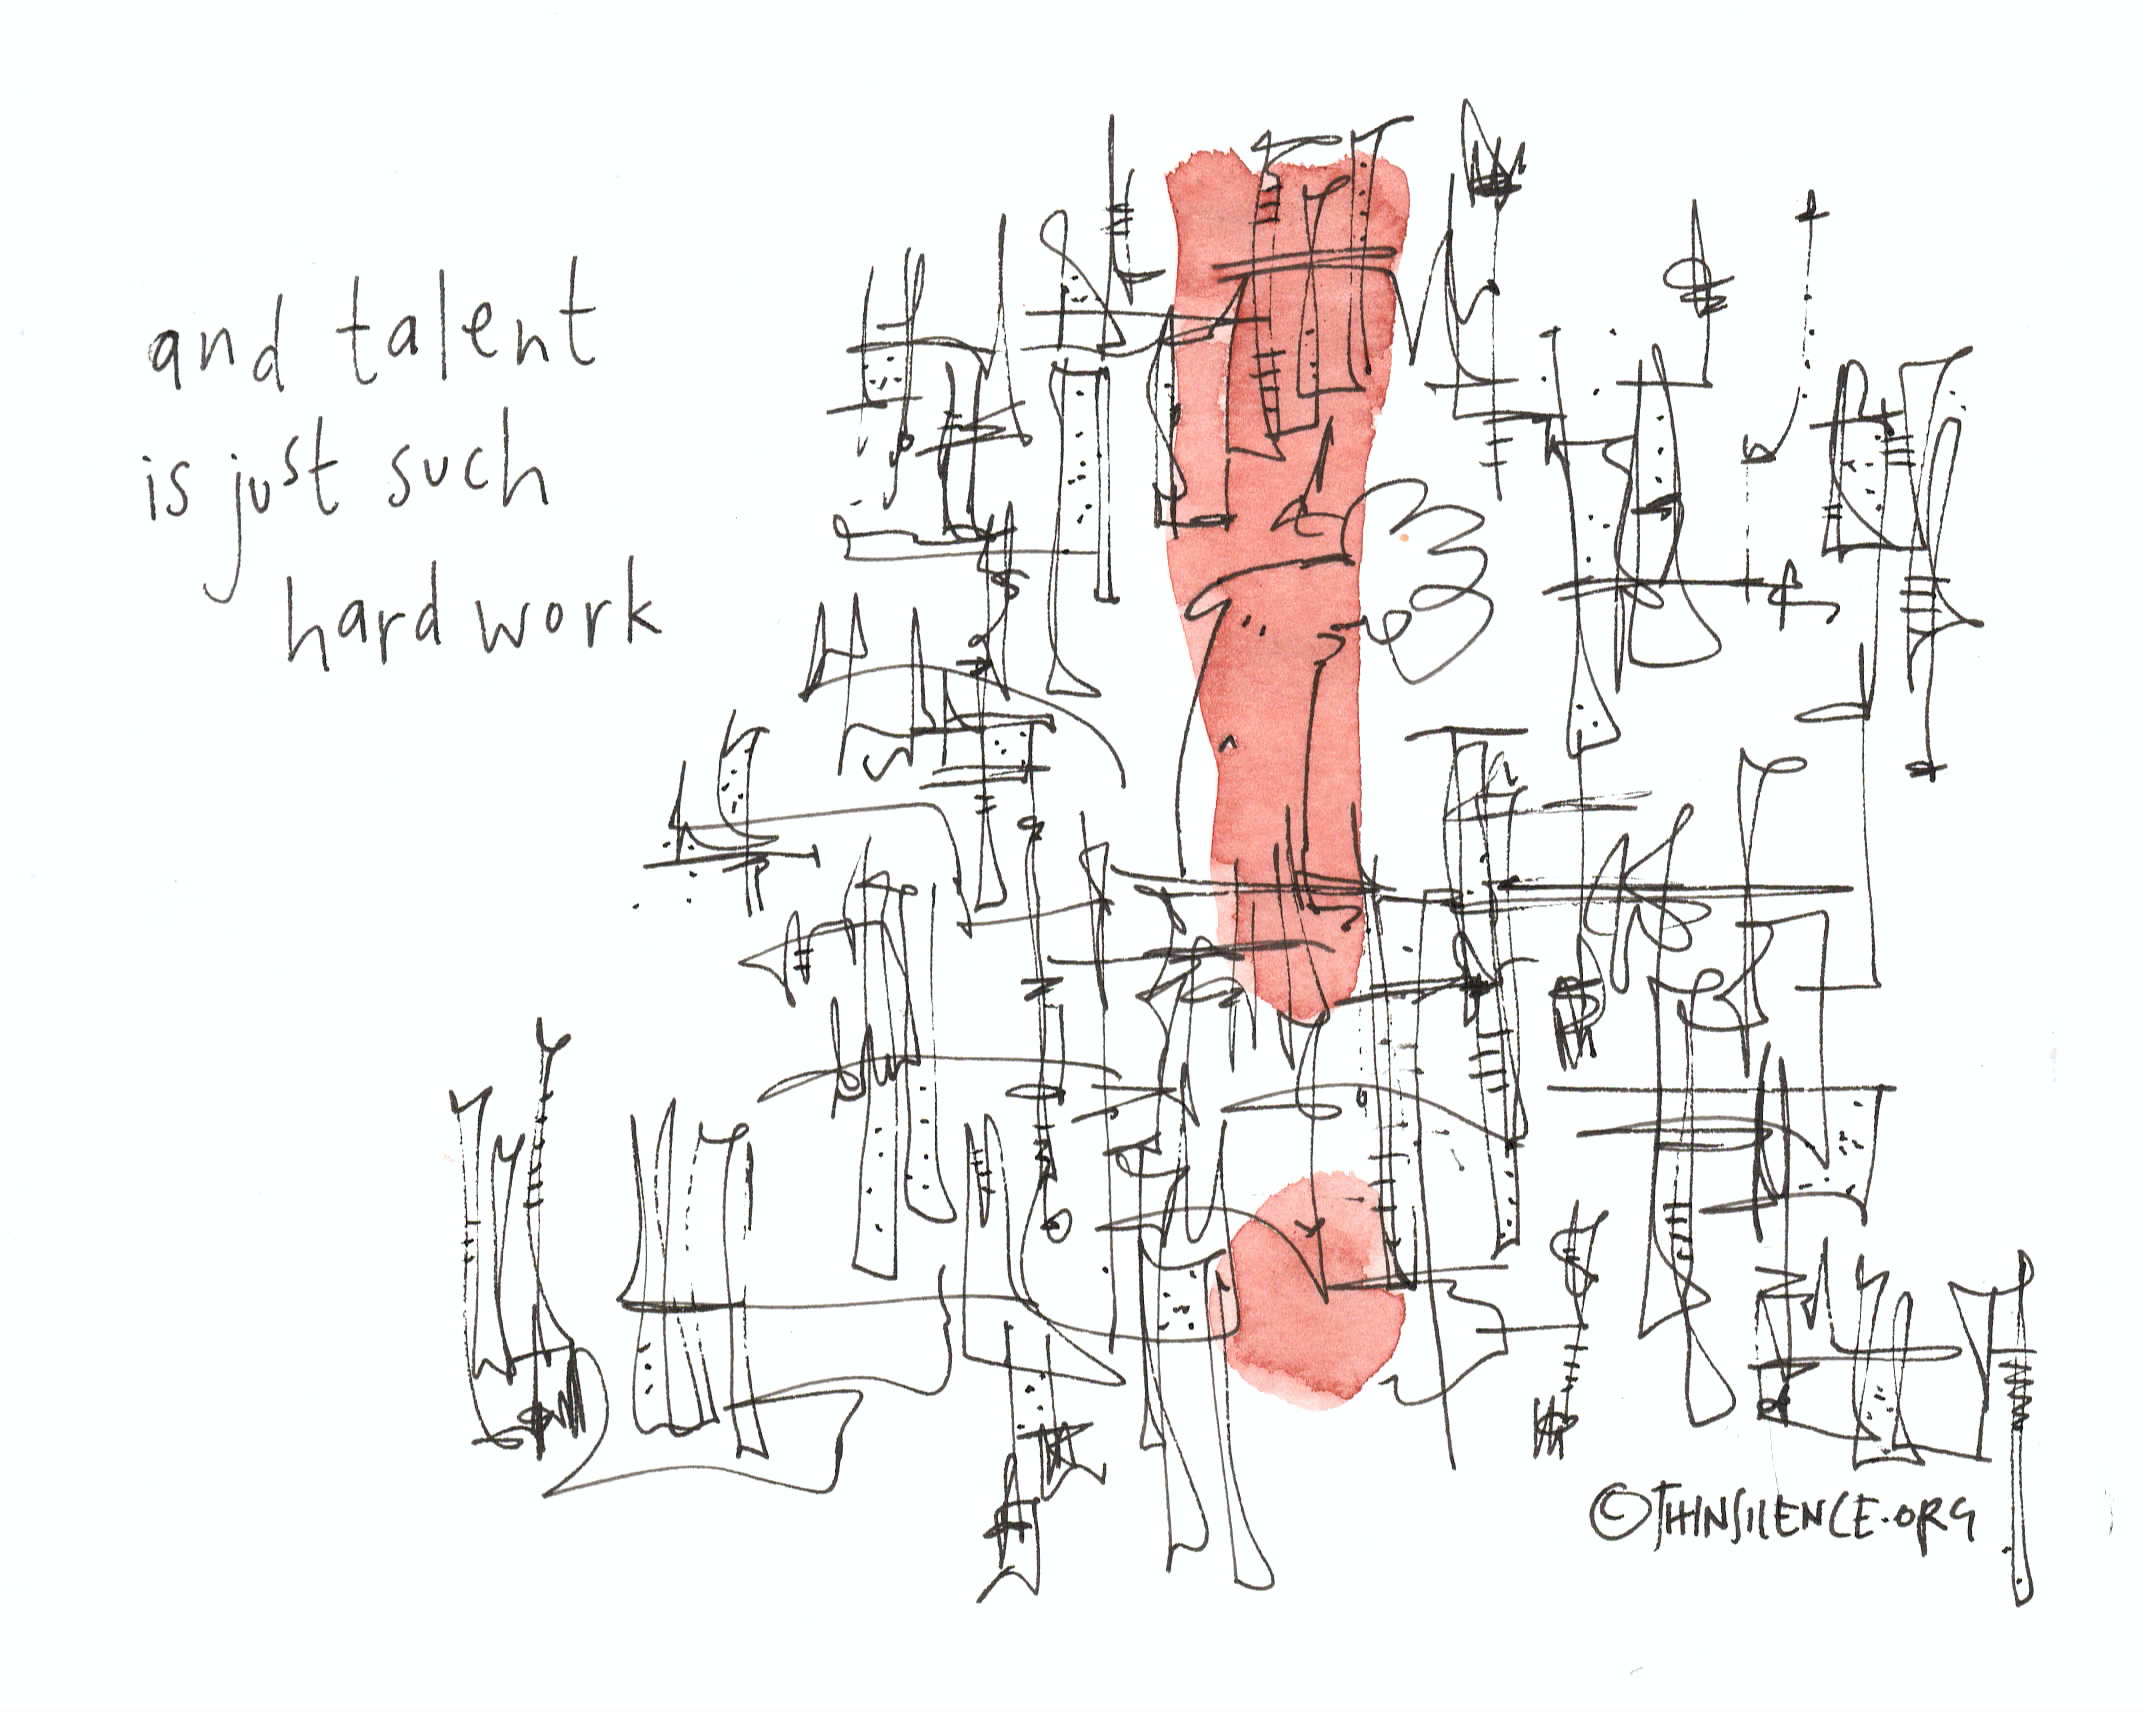 and talent
is just such
hard work
©THINSILENCE.ORG